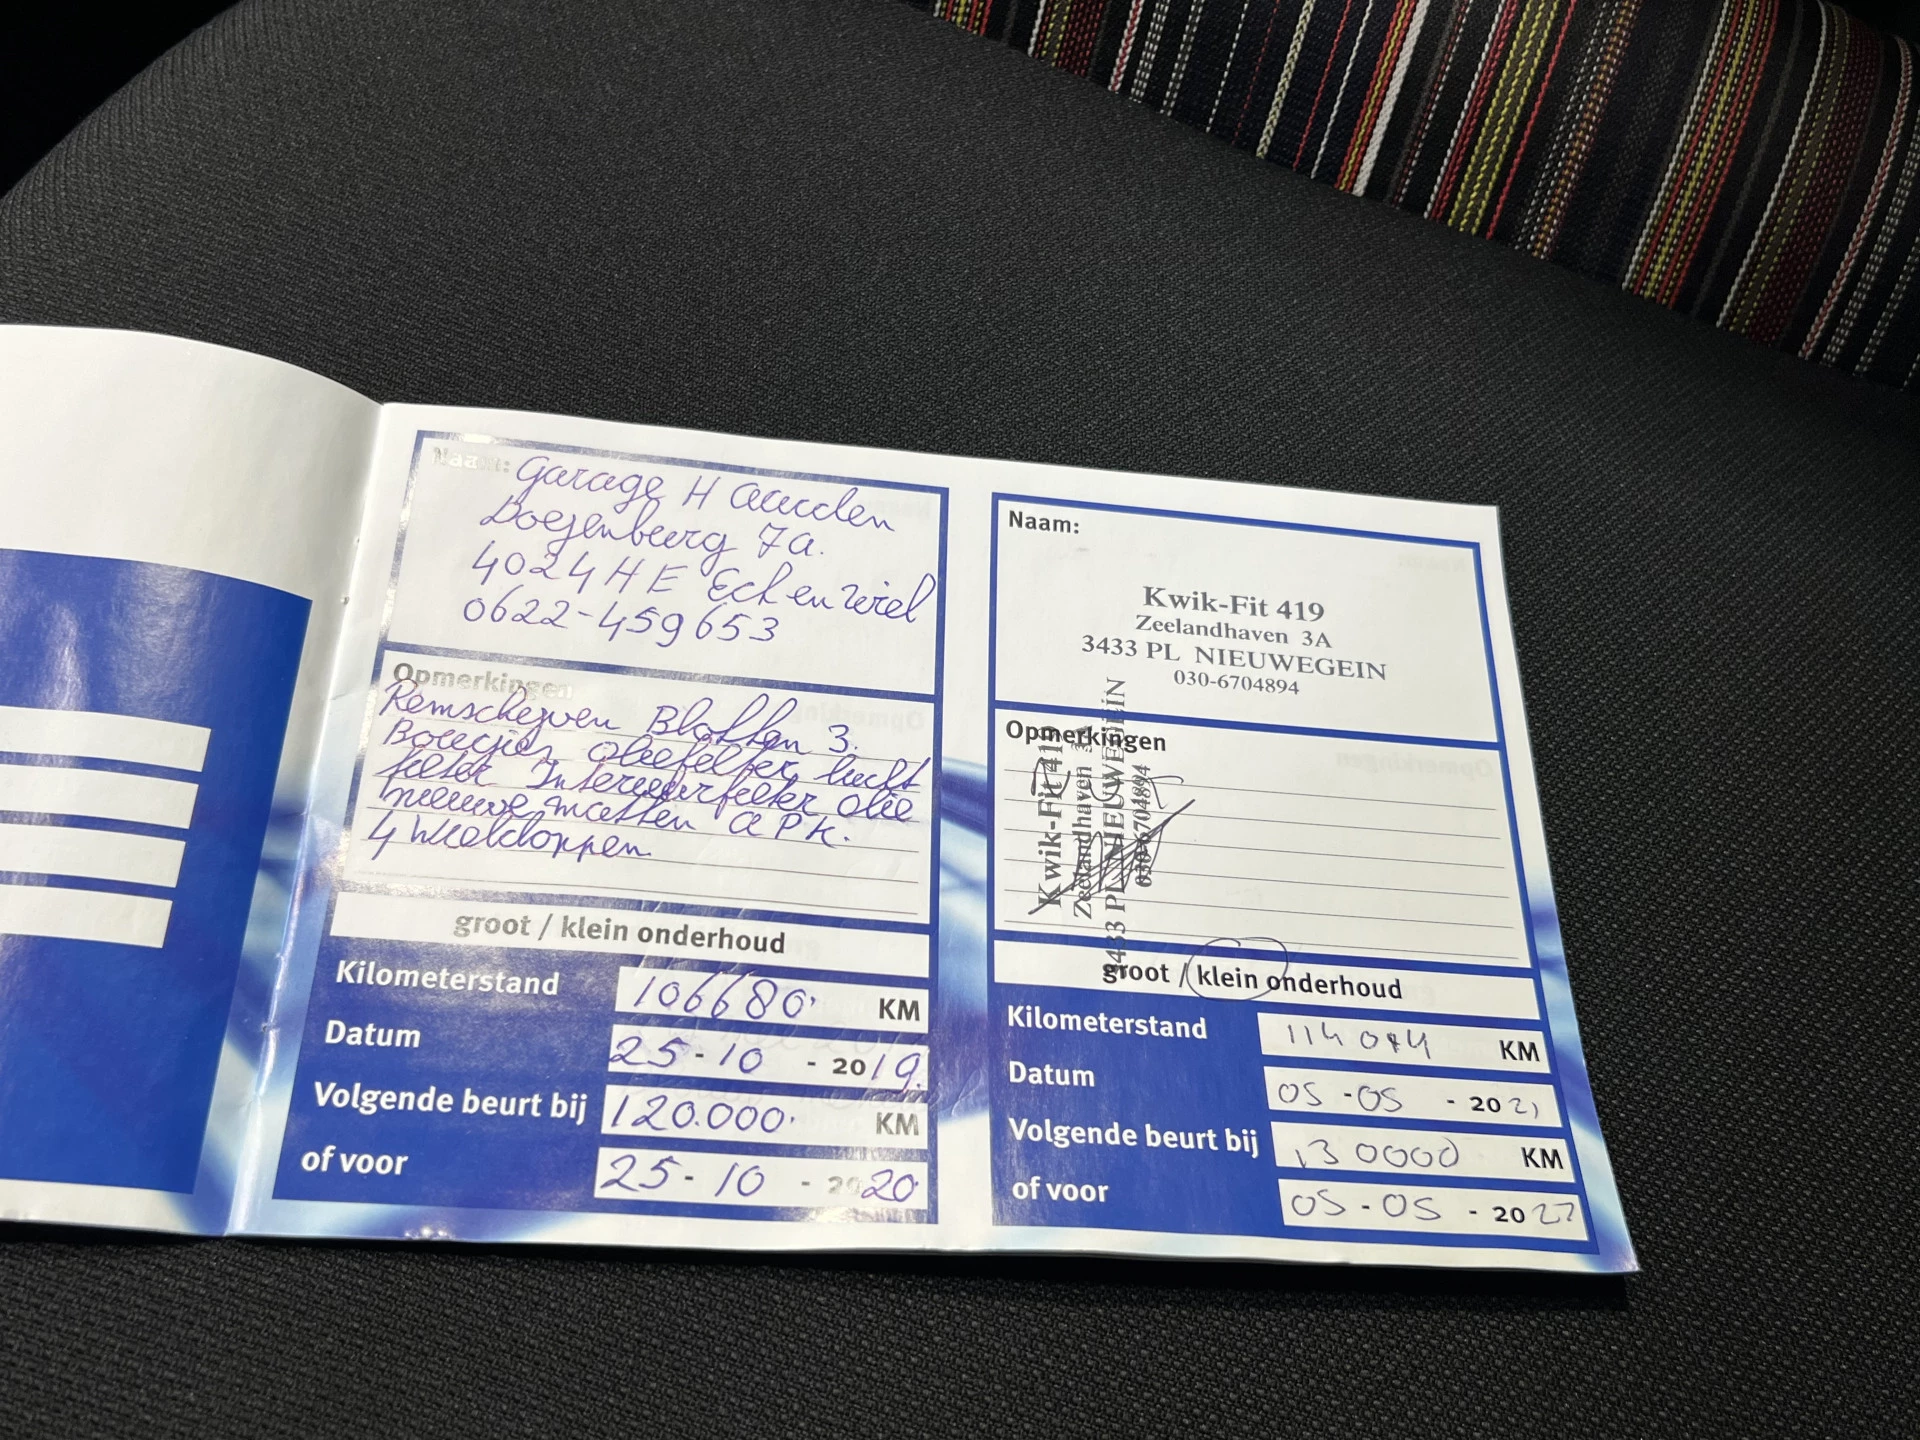 Naam: Garage H
7a.
4024 HE Eck en Wiel
0622-459653
Opmerkingen
Remschijven Blokken 3.
Bougies oliefilter, lucht
filter Interieurfilter olie
nieuwe matten APK.
4 Wieldoppen
groot / klein onderhoud
Kilometerstand 106680 KM
Datum 25-10 - 2019.
Volgende beurt bij 120.000 KM
of voor 25-10 - 2020
Naam:
Kwik-Fit 419
Zeelandhaven 3A
3433 PL NIEUWEGEIN
030-6704894
Opmerkingen
Kwik-Fit 419
Zeelandhaven 3A
3433 PL NIEUWEGEIN
030-6704894
groot / klein onderhoud
Kilometerstand KM
Datum 05-05 - 2021
Volgende beurt bij 130000 KM
of voor 05-05 - 2022